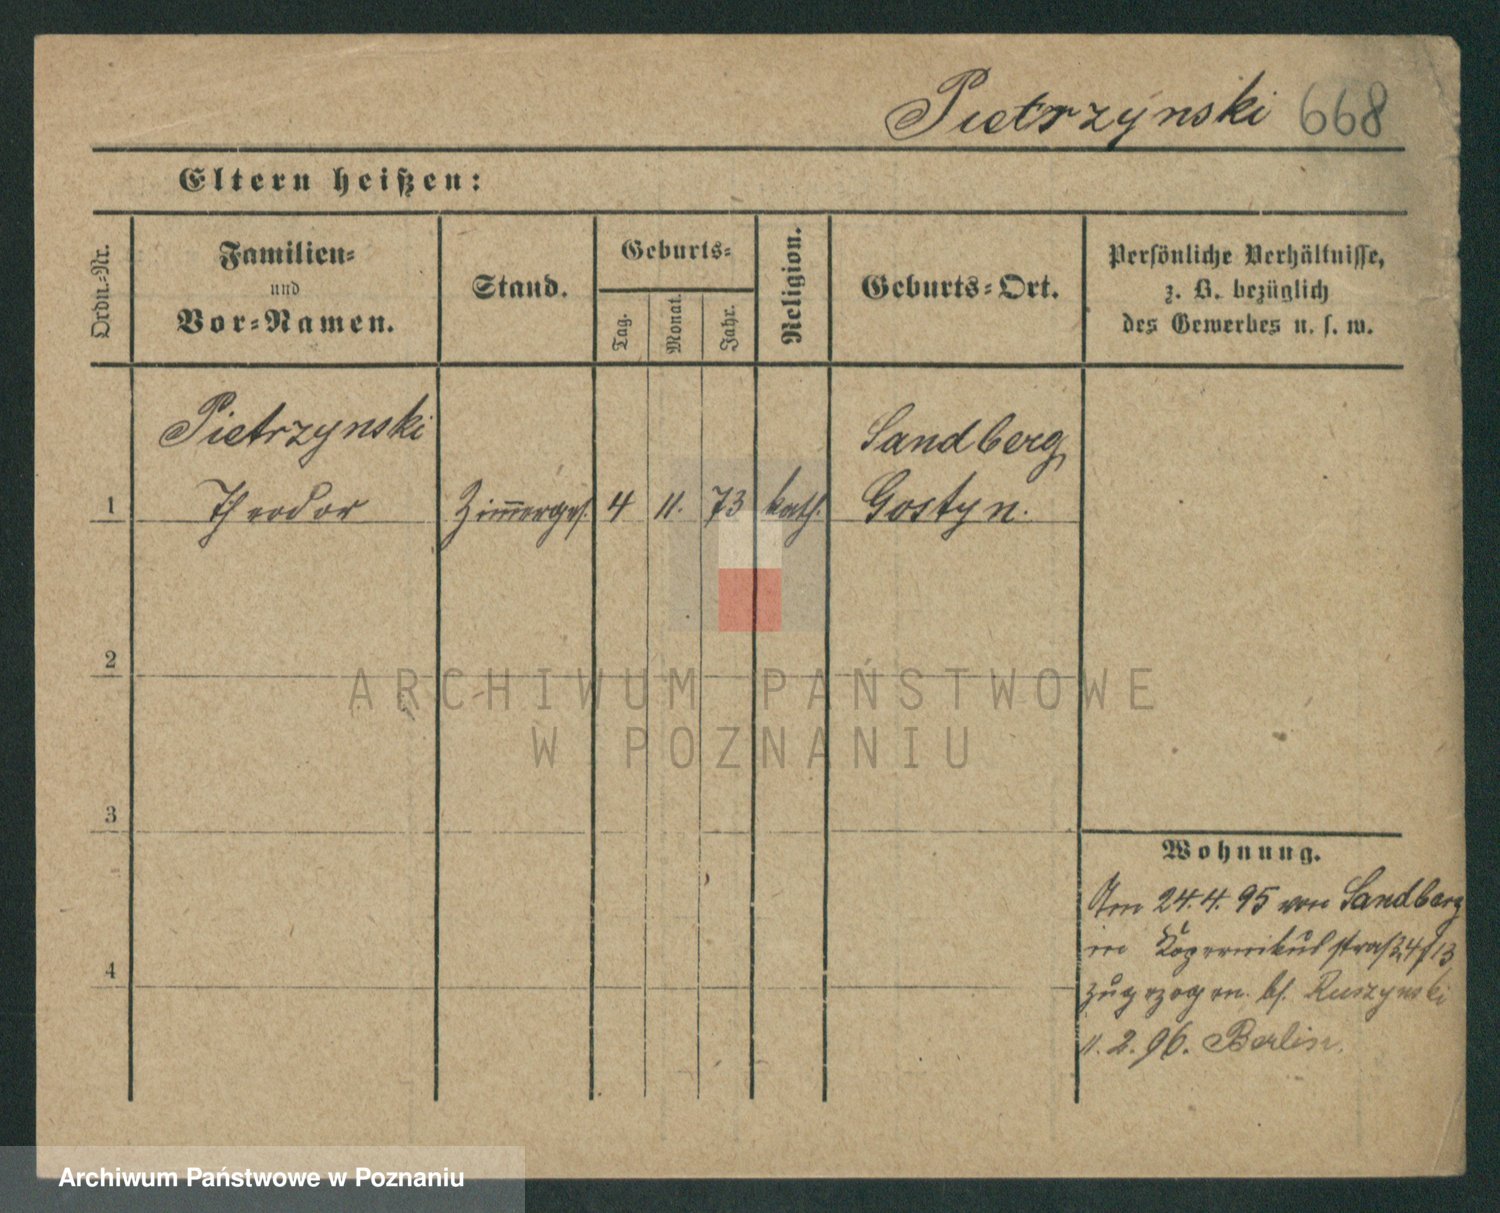 Pietrzynski 668
Eltern heißen:
Ordn.-Nr.
Familien-
und
Vor-Namen.
Stand.
Geburts-
Tag.
Monat.
Jahr.
Religion.
Geburts-Ort.
Persönliche Verhältnisse,
z. B. bezüglich
des Gewerbes u. s. w.
Pietrzynski
Sandberg
1 Theodor Zimmerges. 4 11. 73 kath. Gostyn.
2
ARCHIWUM PAŃSTWOWE
W POZNANIU
3
Wohnung.
Am 24.4.95 von Sandberg
in Kopernikus straße 4/13
4
zugezogen. bs. Ruszynski
11.2.96. Berlin.
Archiwum Państwowe w Poznaniu